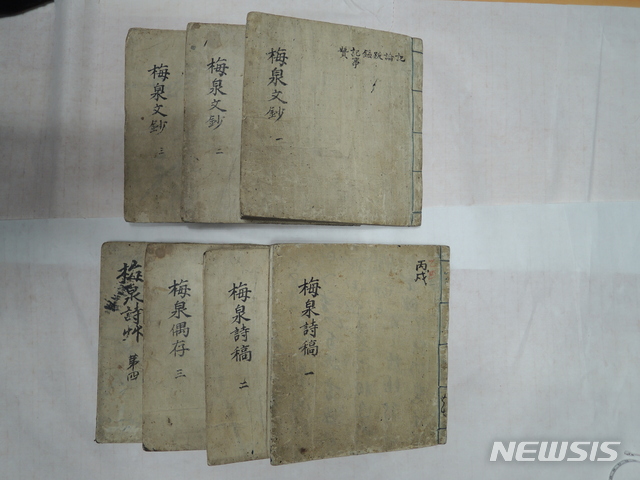 梅泉文鈔 三
梅泉文鈔 二
梅泉文鈔 一
記論跋銘記事
贊
梅泉詩艸 第四
梅泉偶存 三
梅泉詩稿 二
梅泉詩稿 一
丙戌
NEWSIS